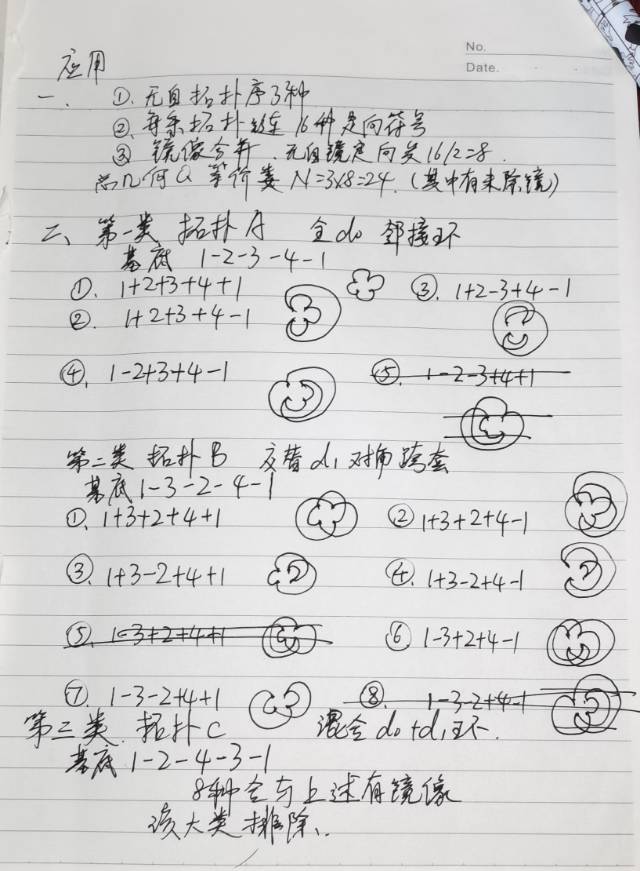 No.
Date.
应用
一、 ①. 无自拓扑序3种
②. 每条拓扑 16种定向符号
③ 镜像合并 无自镜定向类 16/2=8.
总几何G 等价类 N=3×8=24. (其中有未除镜)
二、第一类 拓扑A 全d0 邻接环
基底 1-2-3-4-1
①. 1+2+3+4+1 ③. 1+2-3+4-1
②. 1+2+3+4-1
④. 1-2+3+4-1 ⑤. 1-2-3+4+1
第二类 拓扑B 交替d1对角跨套
基底1-3-2-4-1
①. 1+3+2+4+1 ② 1+3+2+4-1
③. 1+3-2+4+1 ④. 1+3-2+4-1
⑤. 1-3+2+4+1 ⑥ 1-3+2+4-1
⑦. 1-3-2+4+1 ⑧. 1-3-2+4-1
第三类. 拓扑C 混合d0+d1环.
基底1-2-4-3-1
8种全与上述有镜像
该大类排除.